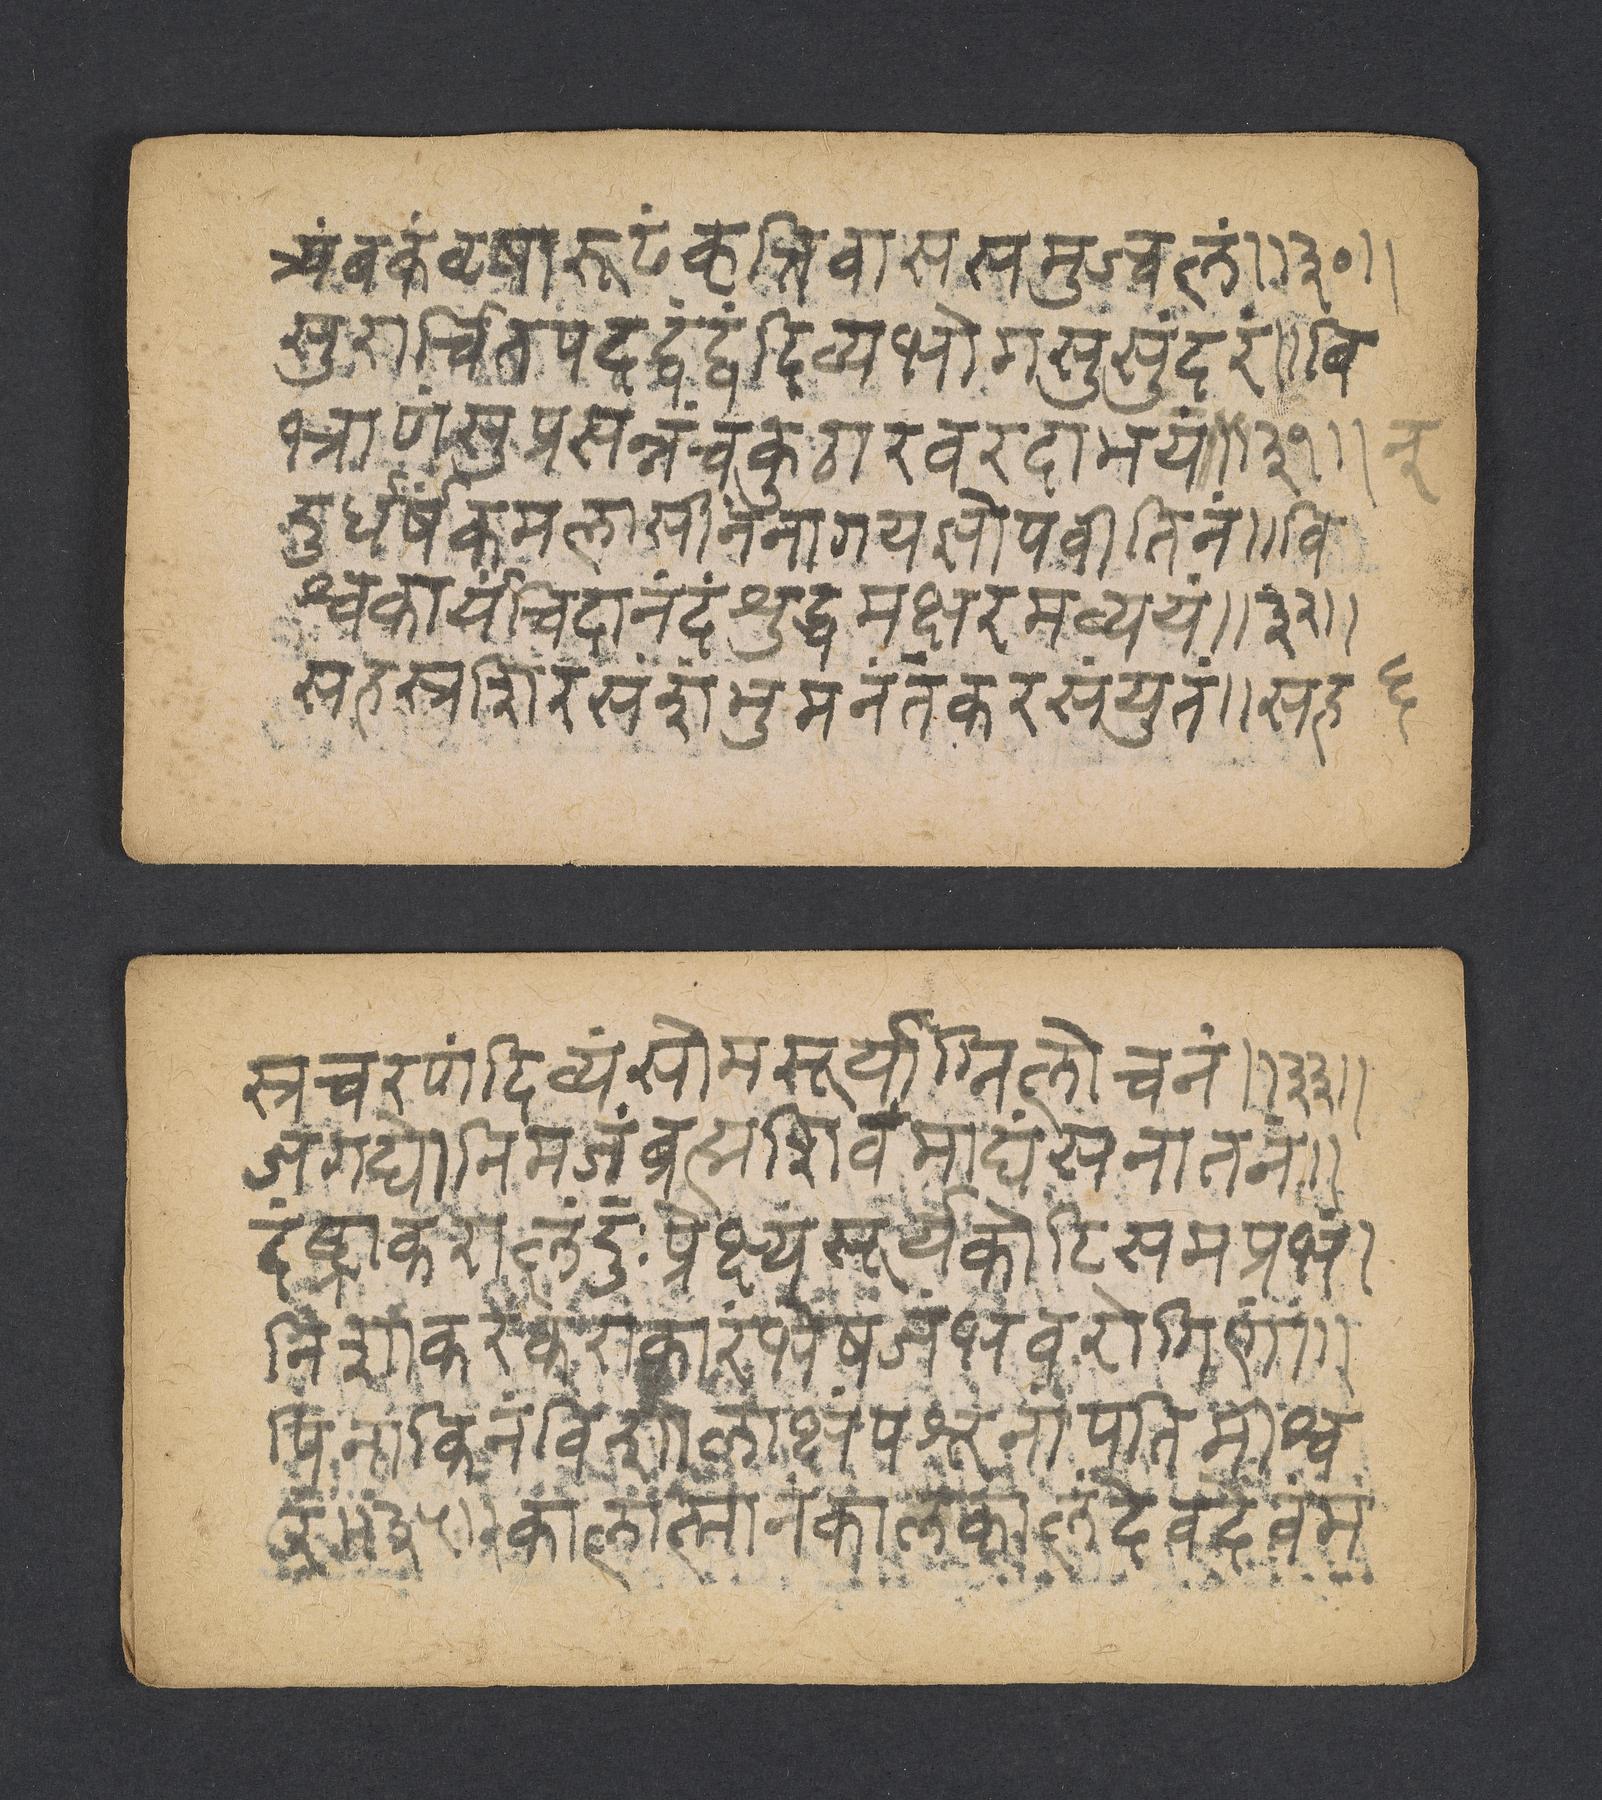 त्र्यंबकंवृषारूढंकृत्तिवाससमुज्वलं॥३०॥
सुरार्चितपदद्वंद्वंदिव्यभोगसुसुंदरं॥बि
भ्राणंसुप्रसन्नंचकुठारवरदाभयं॥३१॥
दुर्धर्षंकमलासीनंनागयज्ञोपवीतिनं॥वि
श्वकायंचिदानंदंशुद्धमक्षरमव्ययं॥३२॥
सहस्त्रशिरसंशंभुमनंतंकरसंयुतं॥सह
नृ
६
स्त्रचरणंदिव्यंसोमसूर्याग्निलोचनं॥३३॥
जगद्योनिमजंब्रह्मशिवंमाद्यंसनातनं॥
दंष्ट्राकरालंदुःप्रेक्ष्यंसूर्यकोटिसमप्रभं।
निशाकरकराकारंभेषजंभवरोगिणां॥
पिनाकिनंविशालाक्षंपशूनांपतिमीश्व
रं॥३५॥कालात्मानंकालकालंदेवदेवंम